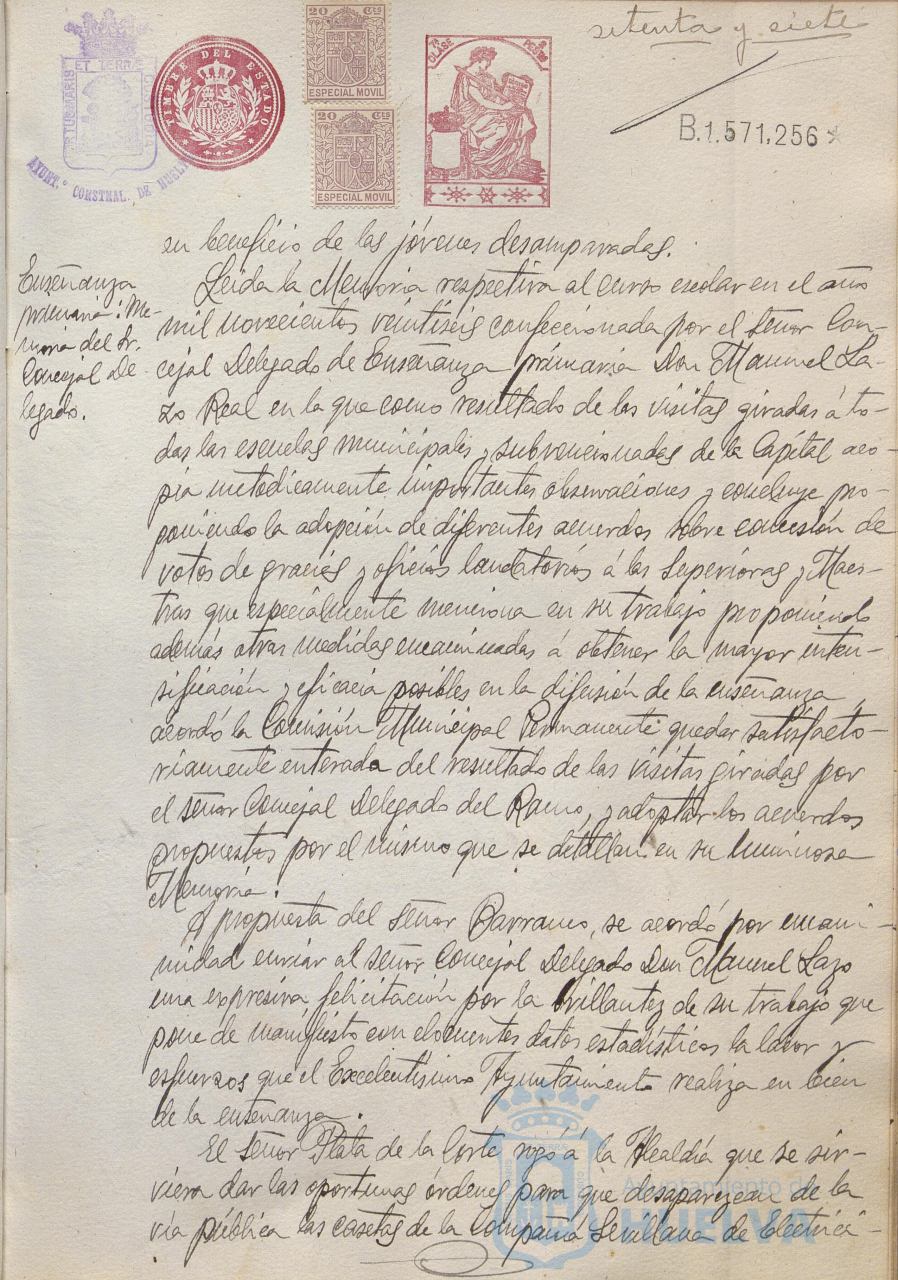 setenta y siete
PORTUS MARIS ET TERRÆ CUSTODIA
AYUNT.º CONSTNAL. DE HUELVA
TIMBRE DEL ESTADO
20 CTS
ESPECIAL MOVIL
20 CTS
ESPECIAL MOVIL
CLASE
PESETAS
B.1.571,256
en beneficio de las jóvenes desamparadas.
Enseñanza
primaria: Me-
moria del Sr.
Concejal De-
legado.
Leída la Memoria respectiva al curso escolar en el año
mil novecientos veintiseis confeccionada por el Señor Con-
cejal Delegado de Enseñanza primaria Don Manuel La-
zo Real en la que como resultado de las visitas giradas á to-
das las escuelas municipales y subvencionadas de la Capital aco-
pia metódicamente importantes observaciones y concluye pro-
poniendo la adopción de diferentes acuerdos sobre concesión de
votos de gracias y oficios laudatorios á las Superioras y Maes-
tras que especialmente menciona en su trabajo proponiendo
además otras medidas encaminadas á obtener la mayor inten-
sificación y eficacia posibles en la difusión de la enseñanza
acordó la Comisión Municipal Permanente quedar satisfacto-
riamente enterada del resultado de las visitas giradas por
el señor Concejal Delegado del Ramo, y adoptar los acuerdos
propuestos por el mismo que se detallan en su luminosa
Memoria.
A propuesta del señor Barranco, se acordó por unani-
midad enviar al señor Concejal Delegado Don Manuel Lazo
una expresiva felicitación por la brillantez de su trabajo que
pone de manifiesto con elocuentes datos estadísticos la labor y
esfuerzos que el Excelentísimo Ayuntamiento realiza en bien
de la enseñanza.
El señor Plata de la Corte rogó á la Alcaldía que se sir-
viera dar las oportunas órdenes para que desaparezcan de la
vía pública las casetas de la Compañía Sevillana de Electrici-
Ayuntamiento de
HUELVA